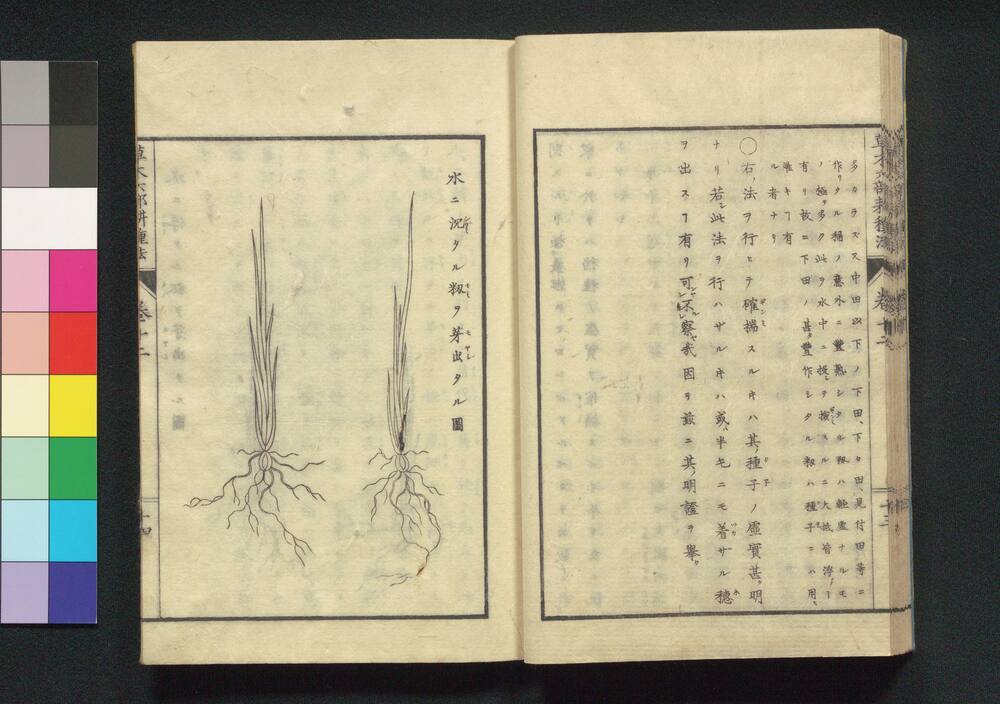 多カラズス中田以下ノ下田、下々田見付田等ニ
作リタル稻ノ意外ニ豐熟シタル籾ハ輕虛ナルモ
ノ極多ク此ヲ水中ニ投シヲ撿スルニ大抵皆浮ー
有リ故ニ下田ノ甚豐作シタル籾ハ種子ニハ用
難キヿ有
ル者ナリ
〇右ノ法ヲ行ヒテ確揣スルキハ其種子ノ虛實甚明
ナリ若シ此法ヲ行ハザルキハ或ハ半毛ニモ着ザル穗
ヲ出スヿ有リ可不察哉因ヲ茲ニ其明證ヲ擧。
草木六部耕種法 卷十二
十三
水ニ沉タル籾ヲ芽出タル圖
草木六部耕種法 卷十二
十四